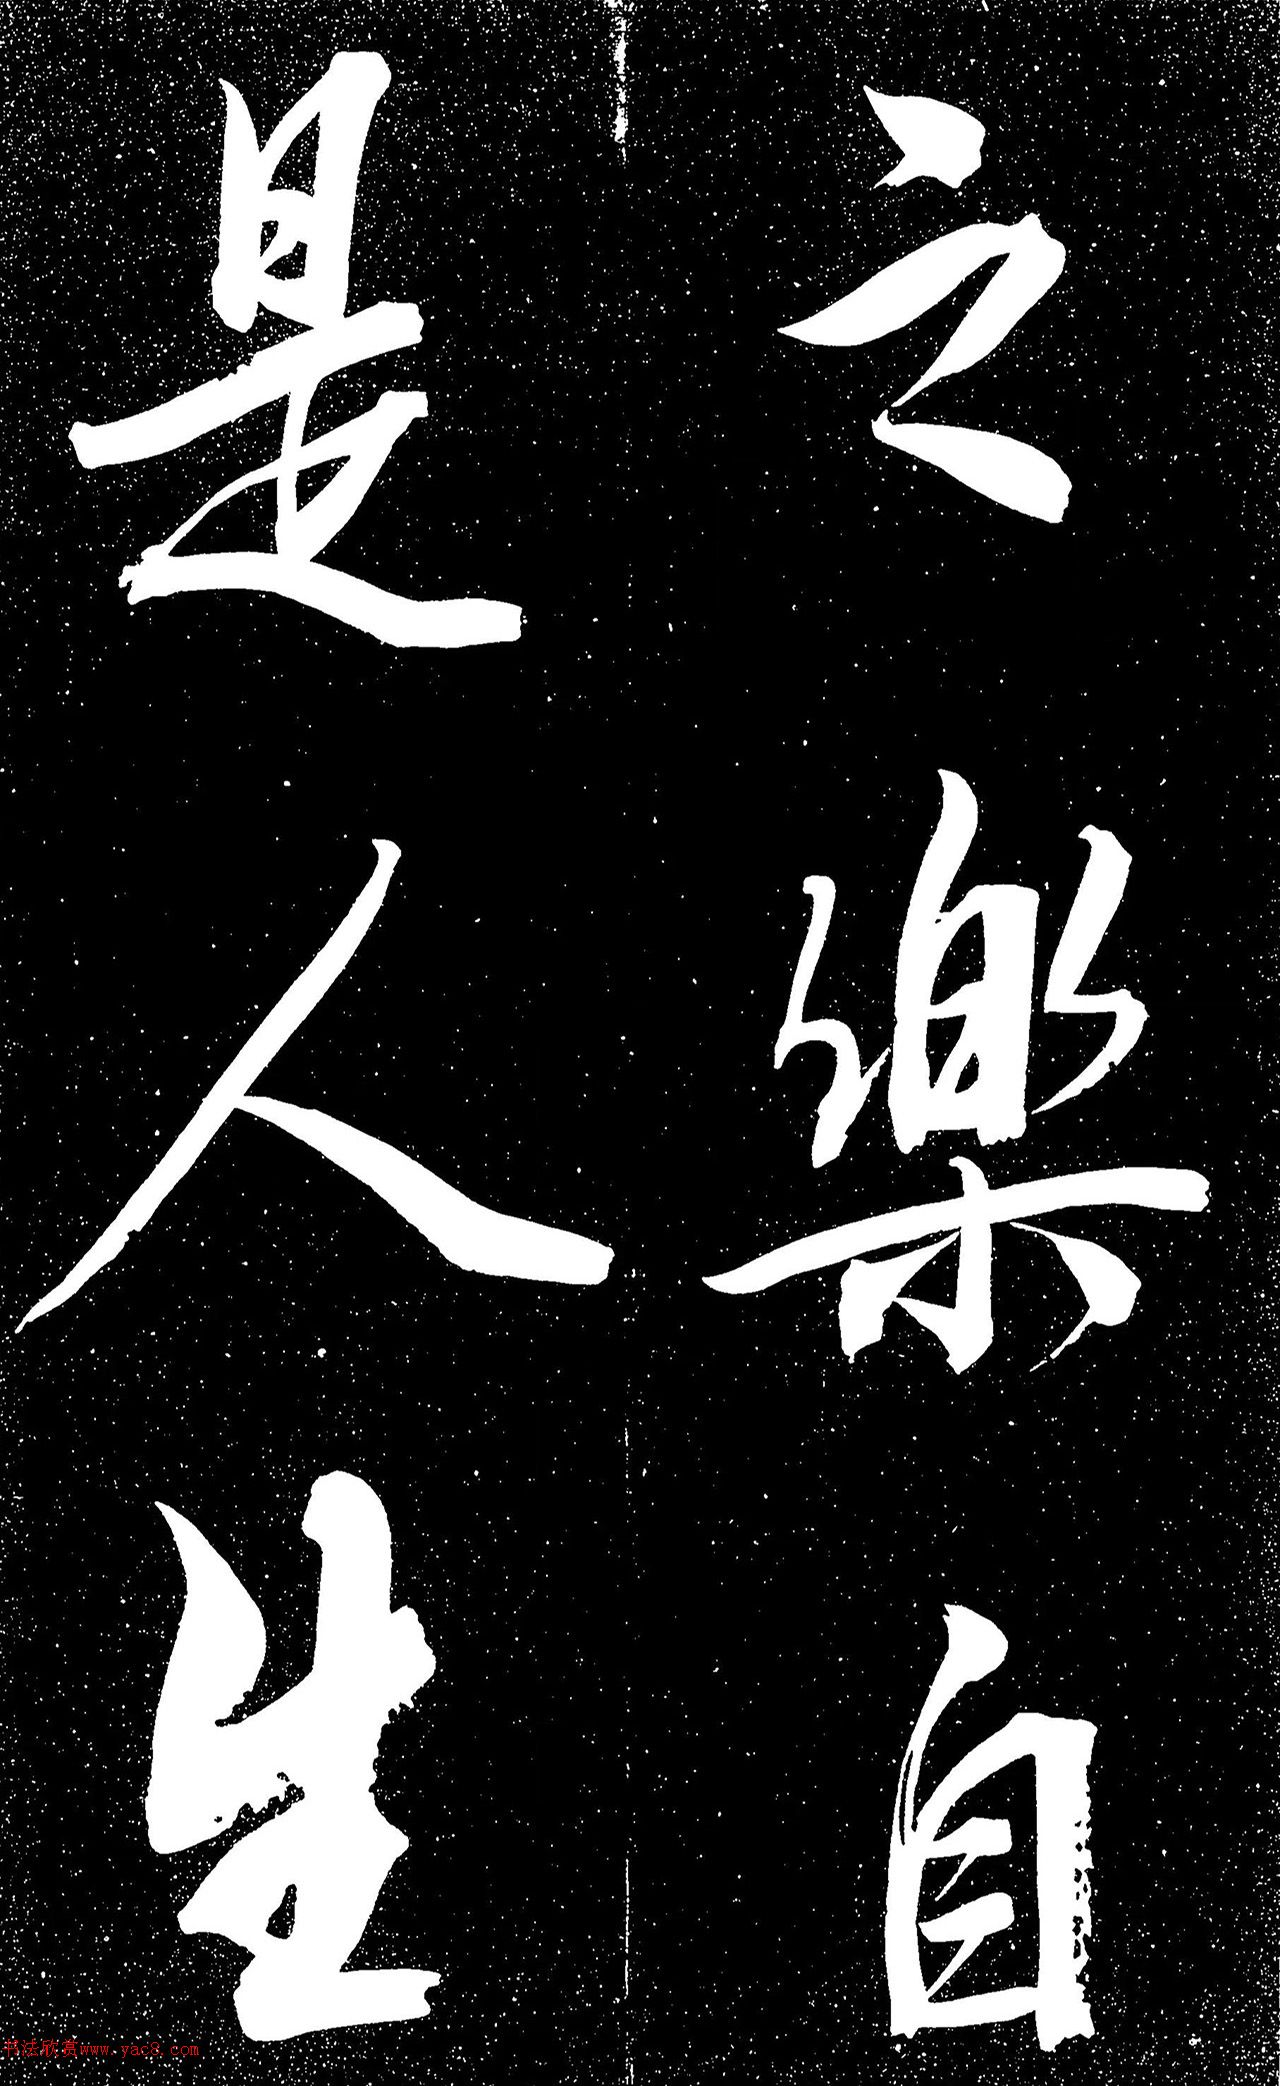 之樂自
是人生
书法欣赏www.yac8.com